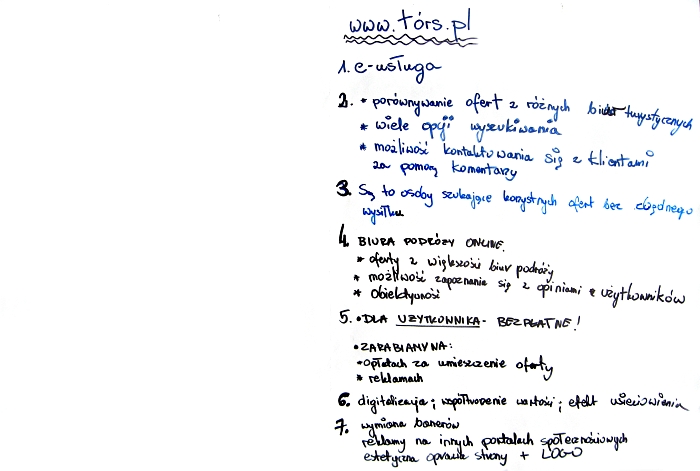 www.tórs.pl
1. e-usługa
2. * porównywanie ofert z różnych biur turystycznych
* wiele opcji wyszukiwania
* możliwość kontaktowania się z klientami
za pomocą komentarzy
3. Są to osoby szukające korzystnych ofert bez zbędnego
wysiłku
4. BIURA PODRÓŻY ONLINE.
* oferty z większości biur podróży
* możliwość zapoznania się z opiniami użytkowników
* obiektywność
5. • DLA UŻYTKOWNIKA - BEZPŁATNE!
• ZARABIAMY NA:
* opłatach za umieszczenie oferty
* reklamach
6. digitalizacja; współtworzenie wartości; efekt usieciowienia
7. wymiana banerów
reklamy na innych portalach społecznościowych
estetyczna oprawa strony + LOGO